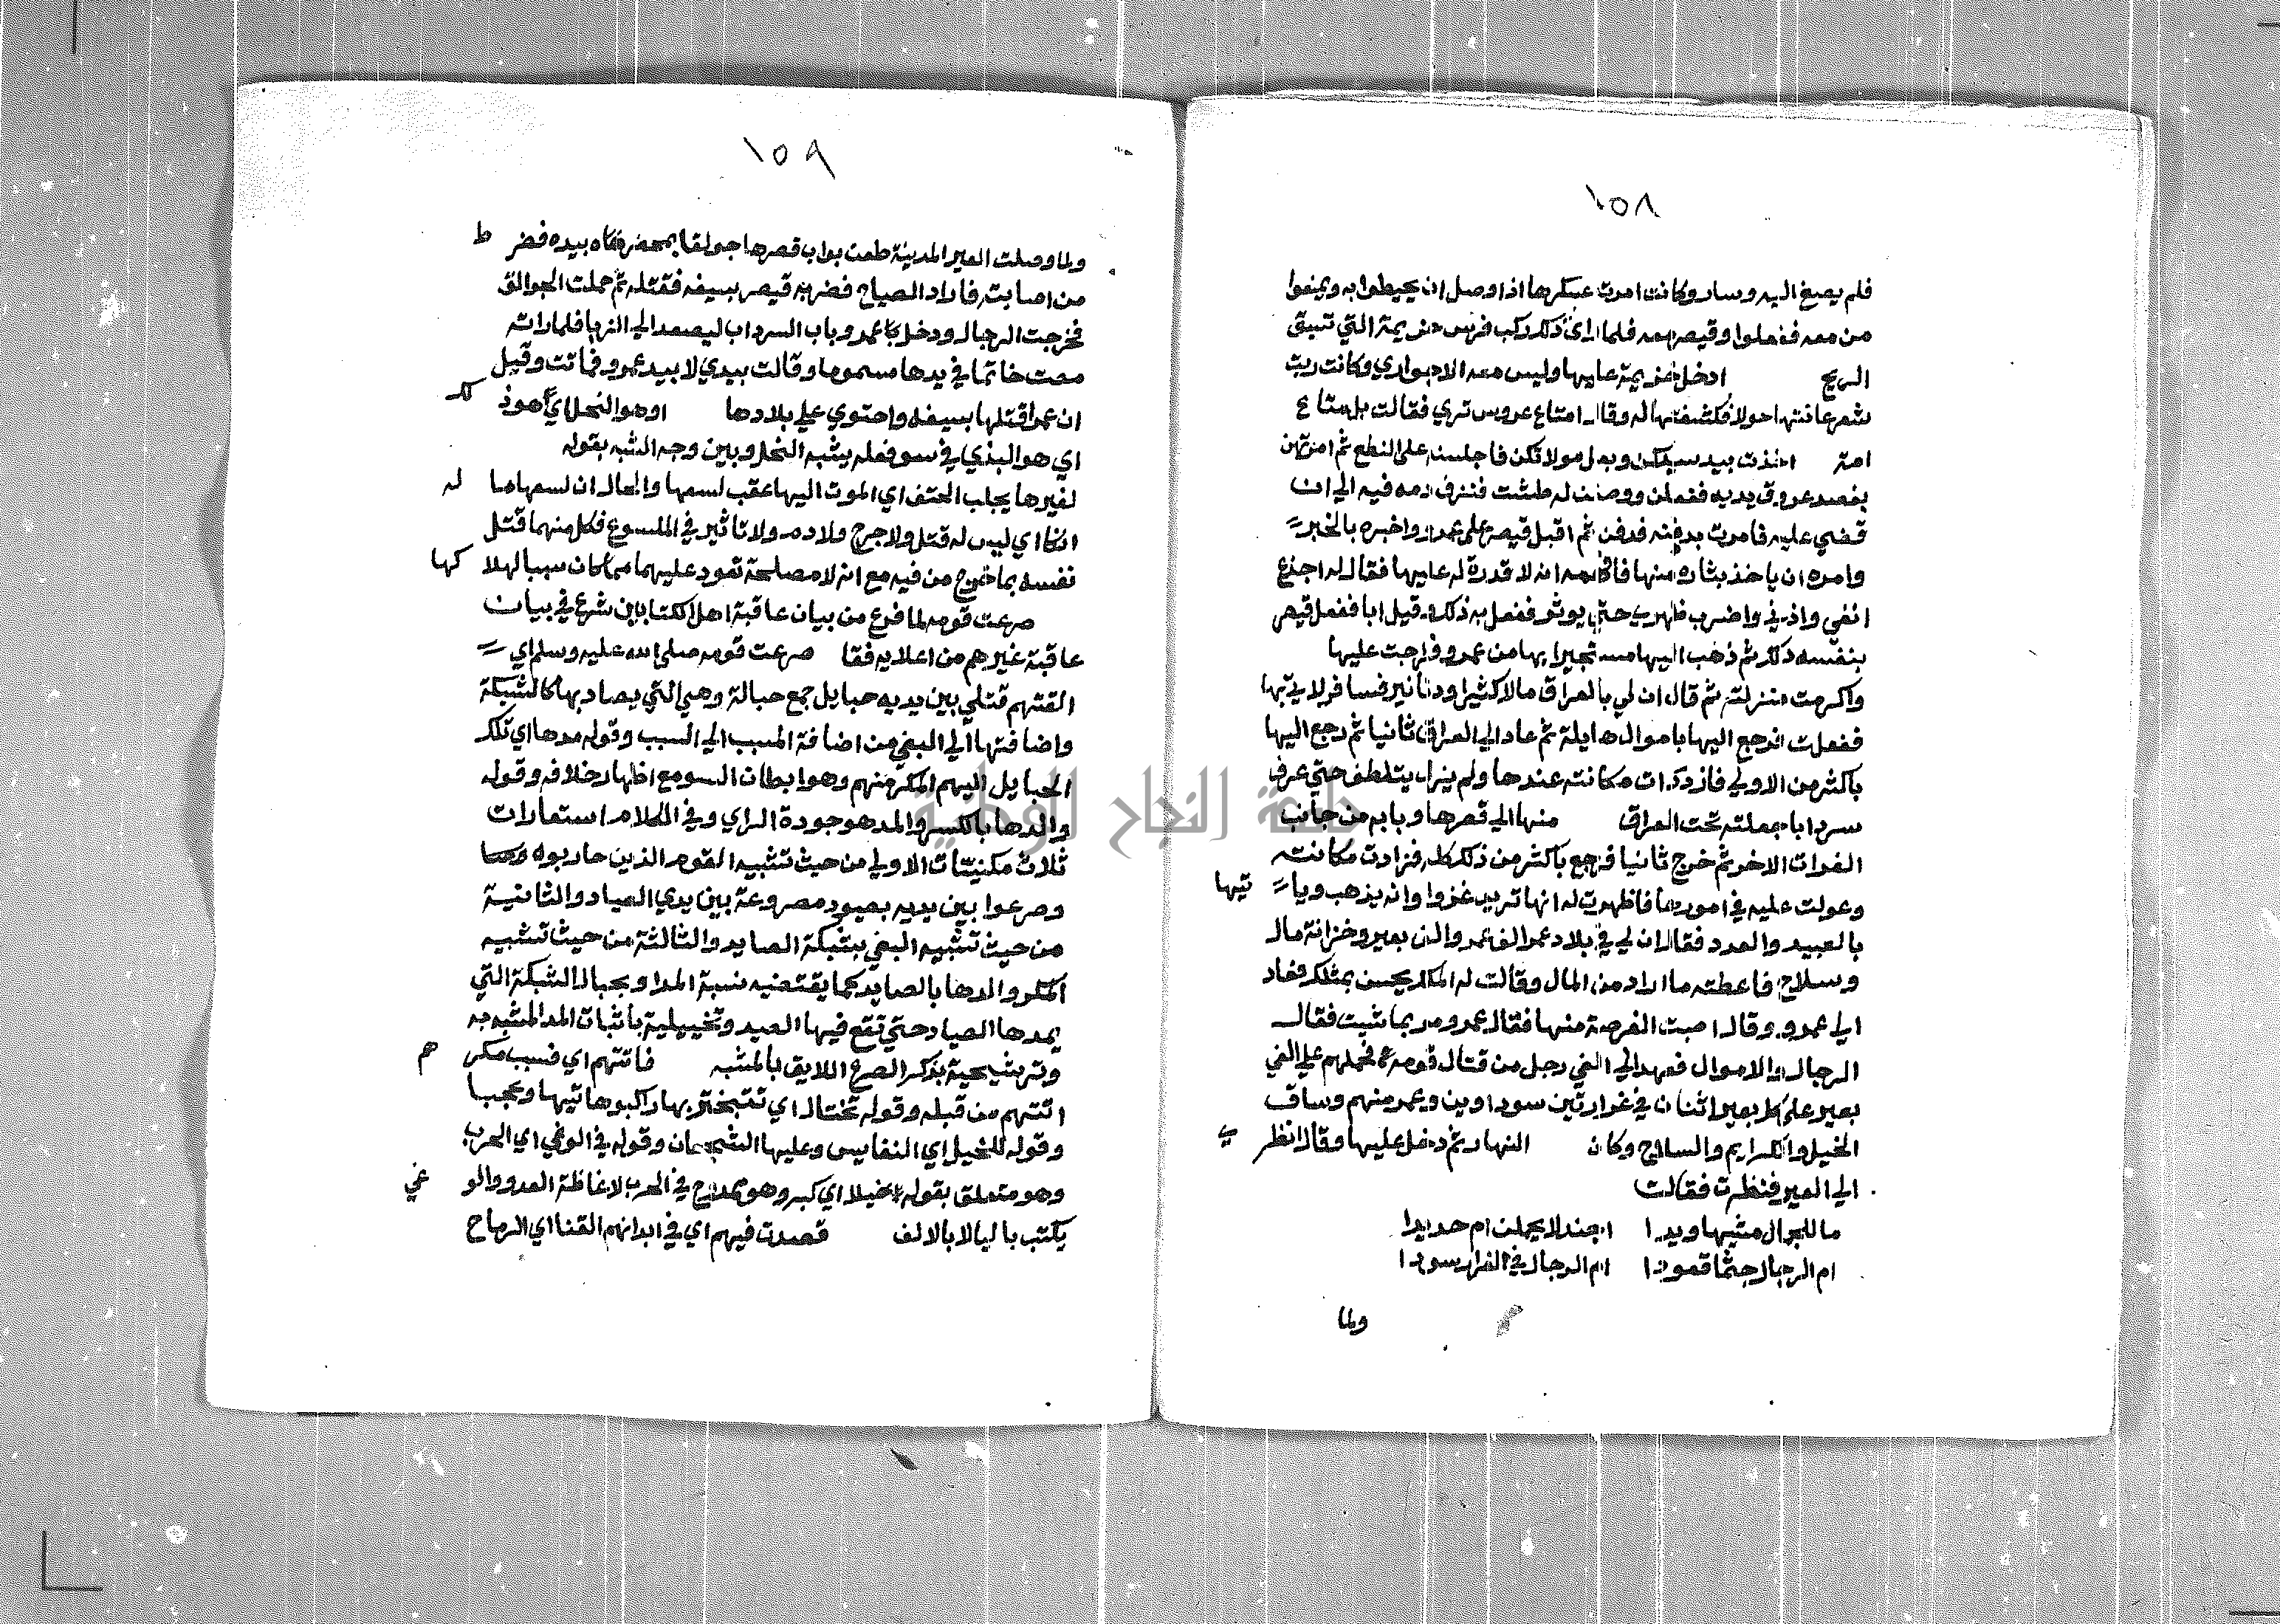 ١٥٨
فلم يصغ اليه وسار وكانت امرت عسكرها اذا وصل ان يحيطوا به ويمنعوا
من معه ففعلوا وقيصر معه فلما راى ذلك ركب فرس جذيمة التي تسبق
الريح ادخل جذيمة عليها وليس معه الا جواري وكانت ربت
شعر عانتها حولا فكشفتها له وقال امتاع عروس تري فقالت بل متاع
امة اخذت بيد سيدكن وبعل مولاتكن فاجلسنه على النطع ثم امرتهن
بفصد عروق يديه ففعلن ووضعن له طشت فنزف دمه فيه الي ان
قضي عليه فامرت بدفنه فدفن ثم اقبل قيصر على عمرو واخبره بالخبر
وامره ان ياخذ بثاره منها فافهمه انه لا قدرة له عليها فقال له اجذع
انفي واذني واضرب ظهري حتي يوثر ففعل به ذلك وقيل ابا ففعل قيصر
بنفسه ذلك ثم ذهب اليها مستجيرا بها من عمرو فرحبت عليها
واكرمت منزلته ثم قال ان لي بالعراق مالا كثيرا ودنانير فسافر لاتي بها
ففعلت فرجع اليها باموال هايلة ثم عاد الي العراق ثانيا ثم رجع اليها
باكثر من الاولي فازدادت مكانته عندها ولم يزل يتلطف حتي عرف
سردابا جعلته تحت العراق منها الي قصرها وبابه من جانب
الفرات الاخر ثم خرج ثانيا فرجع باكثر من ذلك كله فزادت مكانته
وعولت عليه في امورها فاظهرت له انها تريد غزوا وانه يذهب ويا تيها
بالعبيد والعدد فقال ان لي في بلاد عمرو الف عمرو والف بعير وخزانة مال
وسلاح فاعطته ما اراد من المال وقالت له الملك يحسن بمثلك فعاد
الي عمرو وقال اصبت الفرصة منها فقال عمرو مر بما شيت فقال
الرجال والاموال فعهد الي الفي رجل من قتال قومه فحملهم علي الفي
بعير على كل بعير اثنان في غرارتين سوداوين وعمرو منهم وساق
الخيل والكراريم والسلاح وكان النهار ثم دخل عليها وقال انظر ي
الي العير فنظرت فقالت
ما للجمال مشيها وييدا اجندلا يحملن ام حديدا
ام الرجال جثما قعودا ام الرجال في الغرار سودا
ولما
١٥٩
ولما وصلت العير المدينة طعن بواب قصرها جولقا بمحضر فكاه بيده فضر ط
من اصابته فاراد الصياح فضربه قيصر بسيفه فقتله ثم حملت الجوالق
فخرجت الرجال ودخل عمرو باب السرداب ليصعد الي الزبا فلما راته
مصت خاتما في يدها مسموما وقالت بيدي لا بيد عمرو فماتت وقيل
ان عمرا قتلها بسيفه واحتوي علي بلادها اوهو النحل اي هوذ لك
اي هو البذي في سو فعله يشبه النحل وبين وجه الشبه بقوله
لغيرها يجلب الحتف اي الموت اليها عقب لسعها والحال ان لسعها ما له
انكا اي ليس له قتل ولا جرح ولا دم ولا تاثير في الملسوع فكل منهما قتل
نفسه بما خرج من فيه مع انه لا مصلحة تعود عليهما مما كان سببا لهلا كها
صرعت قومه لما فرغ من بيان عاقبة اهل الكتابين شرع في بيان
عاقبة غيرهم من اعدايه فقا صرعت قومه صلى الله عليه وسلم اي
القتهم قتلي بين يديه حبايل جمع حبالة وهي التي يصاد بها كالشبكة
واضافتها الي البغي من اضافة المسبب الي السبب وقوله مدها اي تلك
الحبايل اليهم المكر منهم وهو ابطان السو مع اظهار خلافه وقوله
والدها بالكسر والمد هو جودة الراي وفي الكلام استعارات
ثلاث مكنيتات الاولي من حيث تشبيه القوم الذين حاربوه
وصرعوا بين يديه بصيود مصروعة بين يدي الصياد والثانية
من حيث تشبيه البغي بشبكة الصايد والثالثة من حيث تشبيه
المكر والدها بالصايد كما يقتضيه نسبة المدا وبحبال الشبكة التي
يمدها الصياد حتي تقع فيها الصيد وتخييلية باثبات المد للمشبه به
وترشيحية بذكر الصرع اللايق بالمشبه فاتتهم اي فسبب مكر هم
اتتهم من قبله وقوله تختال اي تتبختر بها راكبوها تيها وعجبا
وقوله للخيل اي النفايس وعليها الشجعان وقوله في الوغي اي الحرب
وهو متعلق بقوله خيلا اي كبر وهو ممدوح في الحرب لاغاظة العدو والو غي
يكتب باليا لا بالالف قصدت فيهم اي في ابدانهم القنا اي الرماح
جامعة النجاح الوطنية